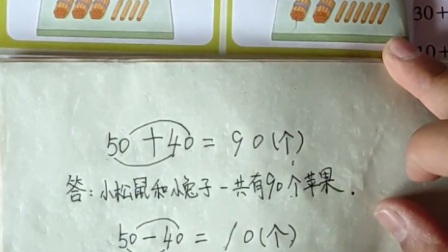 30+
10+
50+40=90(个)
答:小松鼠和小兔子一共有90个苹果.
50-40=10(个)